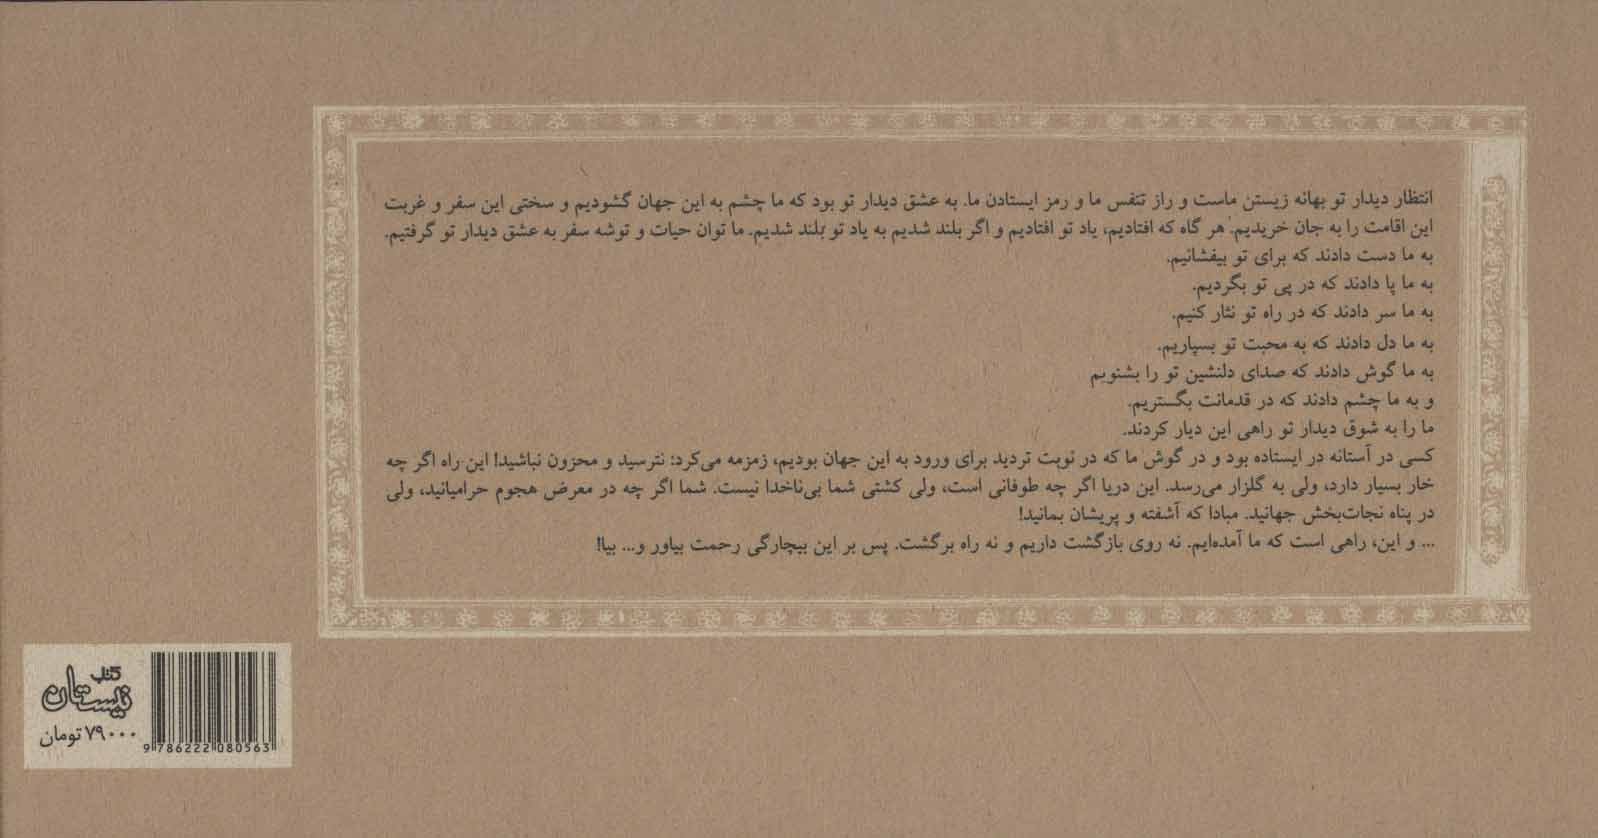 انتظار دیدار تو بهانه زیستن ماست و راز تنفس ما و رمز ایستادن ما. به عشق دیدار تو بود که ما چشم به این جهان گشودیم و سختی این سفر و غربت
این اقامت را به جان خریدیم. هر گاه که افتادیم، یاد تو افتادیم و اگر بلند شدیم به یاد تو بلند شدیم. ما توان حیات و توشه سفر به عشق دیدار تو گرفتیم.
به ما دست دادند که برای تو بیفشانیم.
به ما پا دادند که در پی تو بگردیم.
به ما سر دادند که در راه تو نثار کنیم.
به ما دل دادند که به محبت تو بسپاریم.
به ما گوش دادند که صدای دلنشین تو را بشنویم
و به ما چشم دادند که در قدمانت بگستریم.
ما را به شوق دیدار تو راهی این دیار کردند.
کسی در آستانه در ایستاده بود و در گوش ما که در نوبت تردید برای ورود به این جهان بودیم، زمزمه می‌کرد: نترسید و محزون نباشید! این راه اگر چه
خار بسیار دارد، ولی به گلزار می‌رسد. این دریا اگر چه طوفانی است، ولی کشتی شما بی‌ناخدا نیست. شما اگر چه در معرض هجوم حرامیانید، ولی
در پناه نجات‌بخش جهانید. مبادا که آشفته و پریشان بمانید!
... و این، راهی است که ما آمده‌ایم. نه روی بازگشت داریم و نه راه برگشت. پس بر این بیچارگی رحمت بیاور و... بیا!
کتاب
نیستان
۷۹۰۰۰ تومان
9 786222 080563